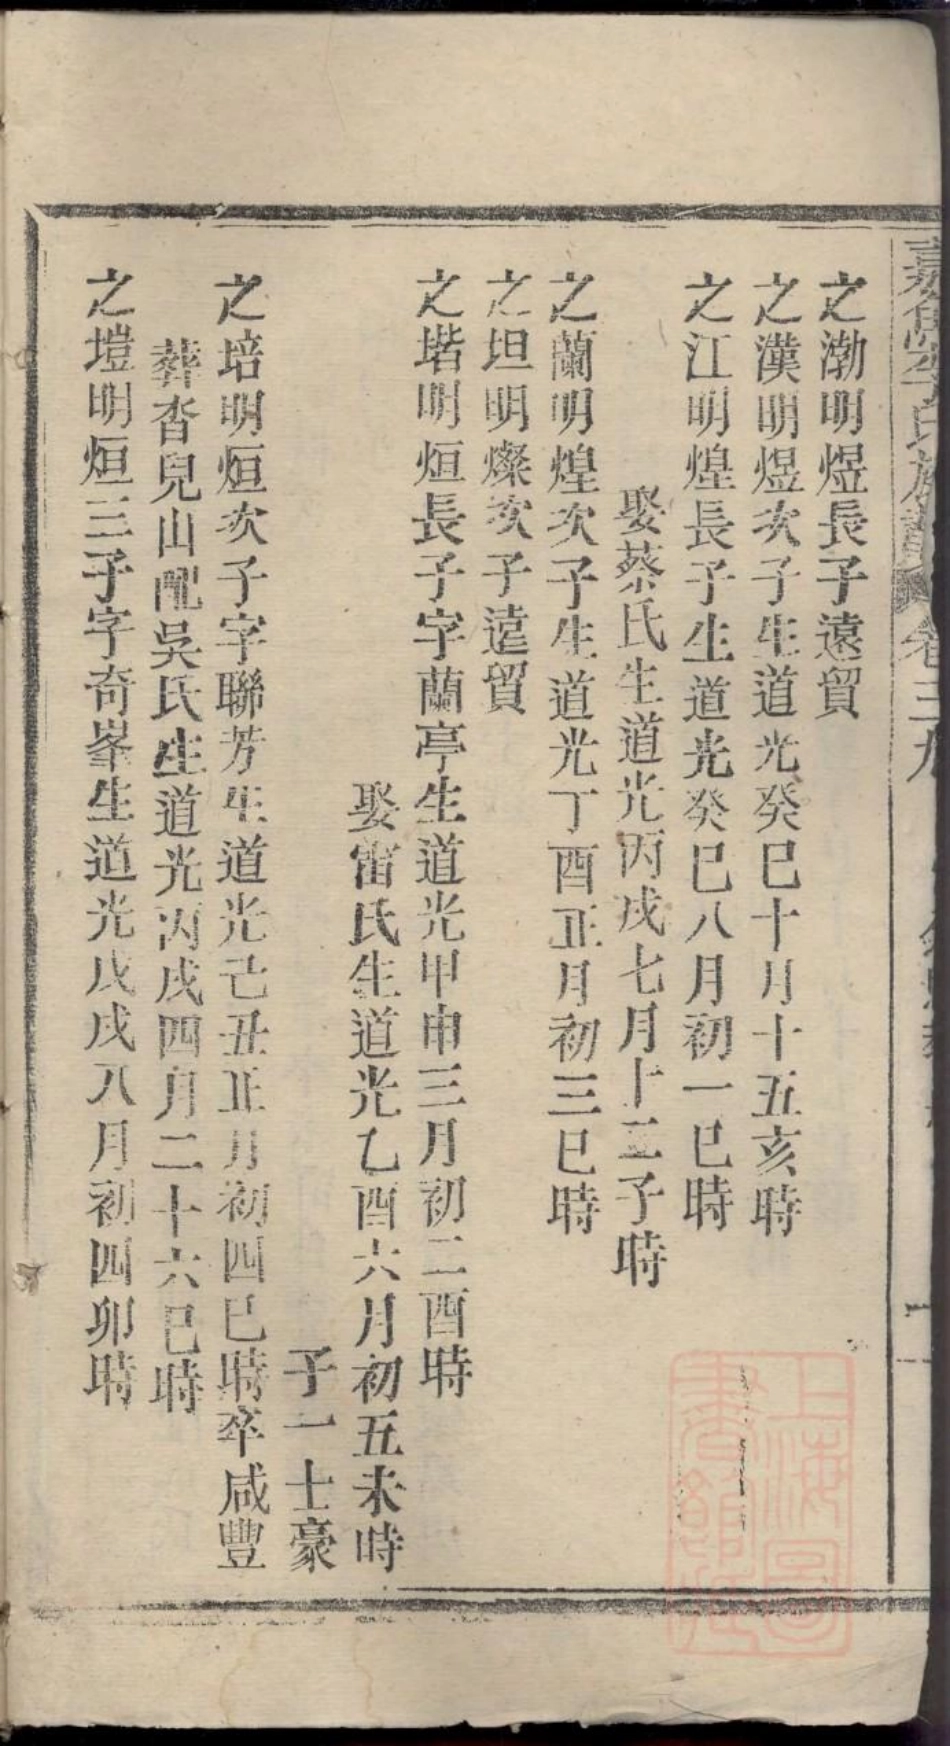 族譜 卷三九
之渤明煜長子遠貿
之漢明煜次子生道光癸巳十月十五亥時
之江明煌長子生道光癸巳八月初一巳時
娶蔡氏生道光丙戌七月十二子時
之蘭明煌次子生道光丁酉正月初三巳時
之坦明燦次子遠貿
之堦明烜長子字蘭亭生道光甲申三月初二酉時
娶雷氏生道光乙酉六月初五未時
子一士豪
之培明烜次子字聯芳生道光己丑正月初四巳時卒咸豐
葬杳兒山配吳氏生道光丙戌四月二十六巳時
之塏明烜三子字奇峯生道光戊戌八月初四卯時
上海圖
書館藏